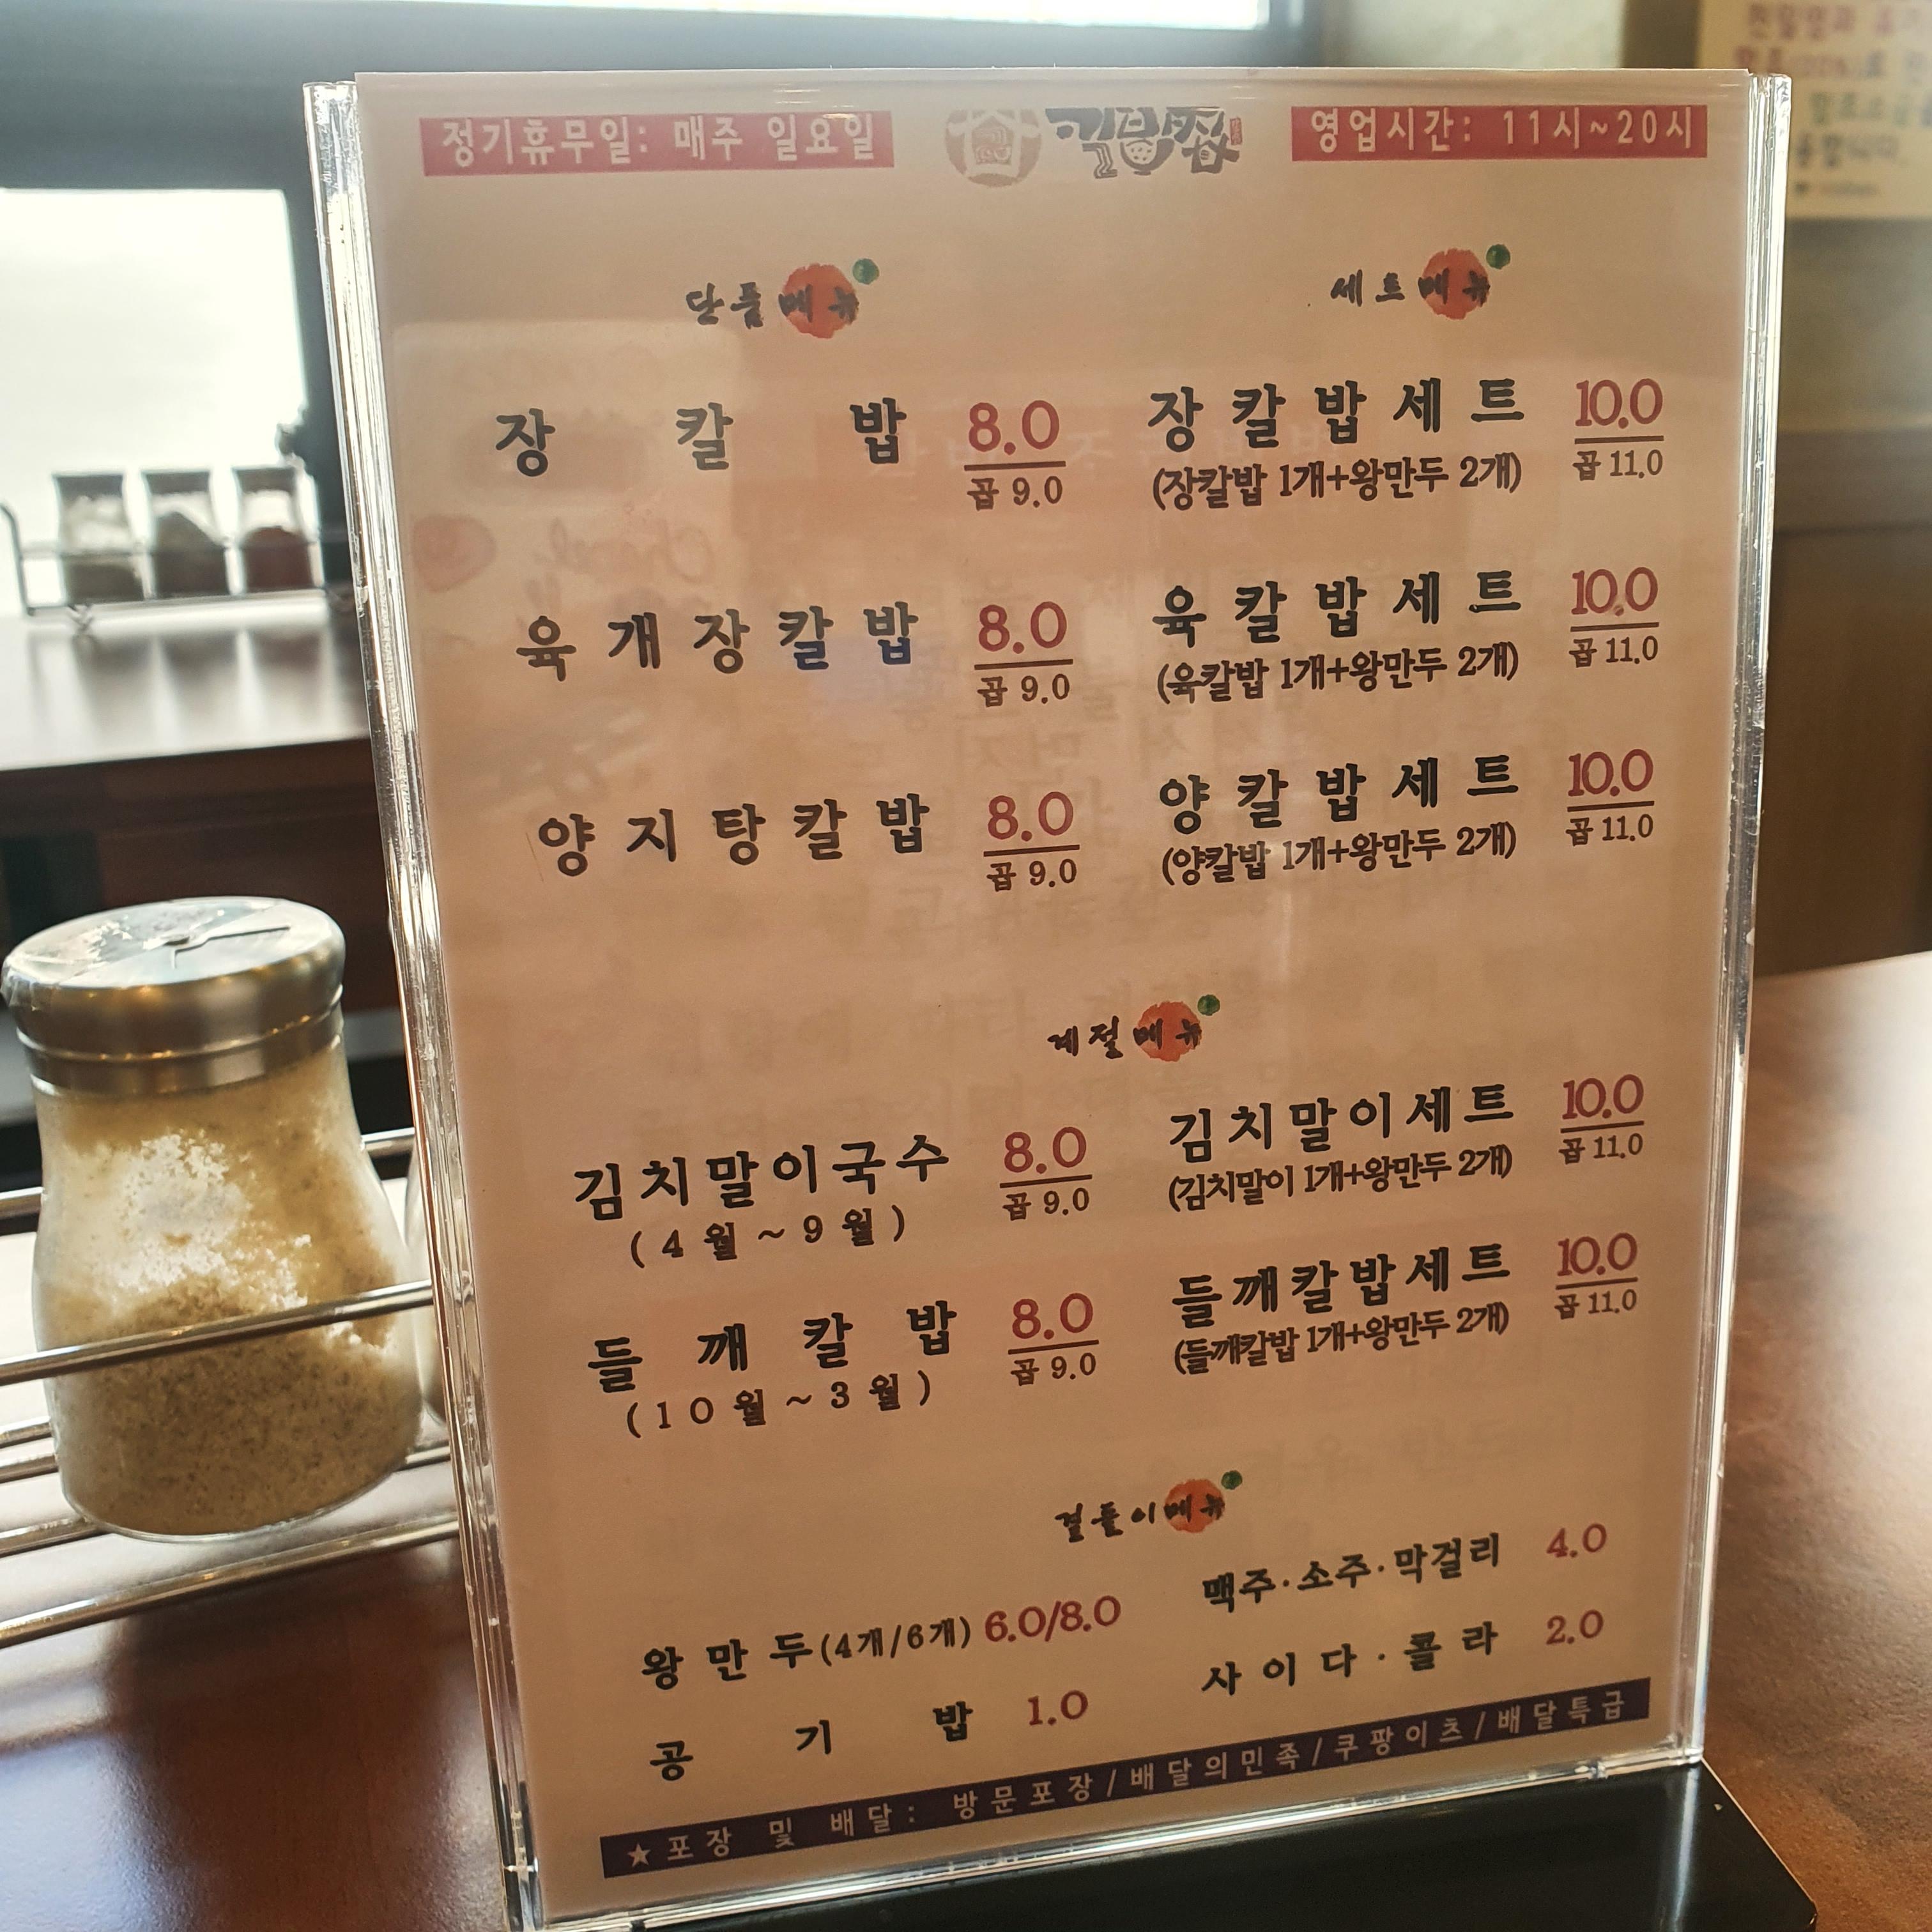 정기휴무일: 매주 일요일
칼밥집
영업시간: 11시~20시
단품메뉴
세트메뉴
장칼밥 8.0
곱 9.0
장칼밥세트 10.0
(장칼밥 1개+왕만두 2개) 곱 11.0
육개장칼밥 8.0
곱 9.0
육칼밥세트 10.0
(육칼밥 1개+왕만두 2개) 곱 11.0
양지탕칼밥 8.0
곱 9.0
양칼밥세트 10.0
(양칼밥 1개+왕만두 2개) 곱 11.0
계절메뉴
김치말이국수 8.0
(4월~9월) 곱 9.0
김치말이세트 10.0
(김치말이 1개+왕만두 2개) 곱 11.0
들깨칼밥 8.0
(10월~3월) 곱 9.0
들깨칼밥세트 10.0
(들깨칼밥 1개+왕만두 2개) 곱 11.0
곁들이메뉴
왕만두(4개/6개) 6.0/8.0
맥주·소주·막걸리 4.0
공기밥 1.0
사이다·콜라 2.0
★포장 및 배달: 방문포장/배달의민족/쿠팡이츠/배달특급